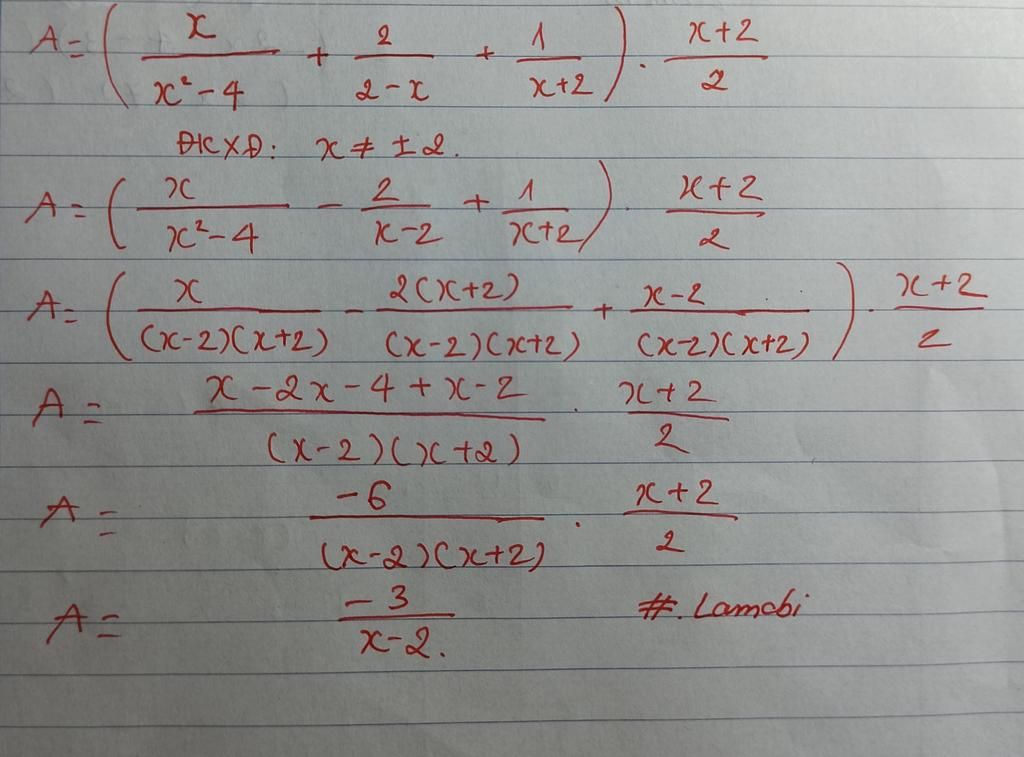 A = ( x/(x² - 4) + 2/(2 - x) + 1/(x+2) ) . (x+2)/2
ĐKXĐ: x ≠ ±2.
A = ( x/(x² - 4) - 2/(x-2) + 1/(x+2) ) . (x+2)/2
A = ( x/((x-2)(x+2)) - 2(x+2)/((x-2)(x+2)) + (x-2)/((x-2)(x+2)) ) . (x+2)/2
A = (x - 2x - 4 + x - 2)/((x-2)(x+2)) . (x+2)/2
A = -6/((x-2)(x+2)) . (x+2)/2
A = -3/(x-2). #. Lamabi